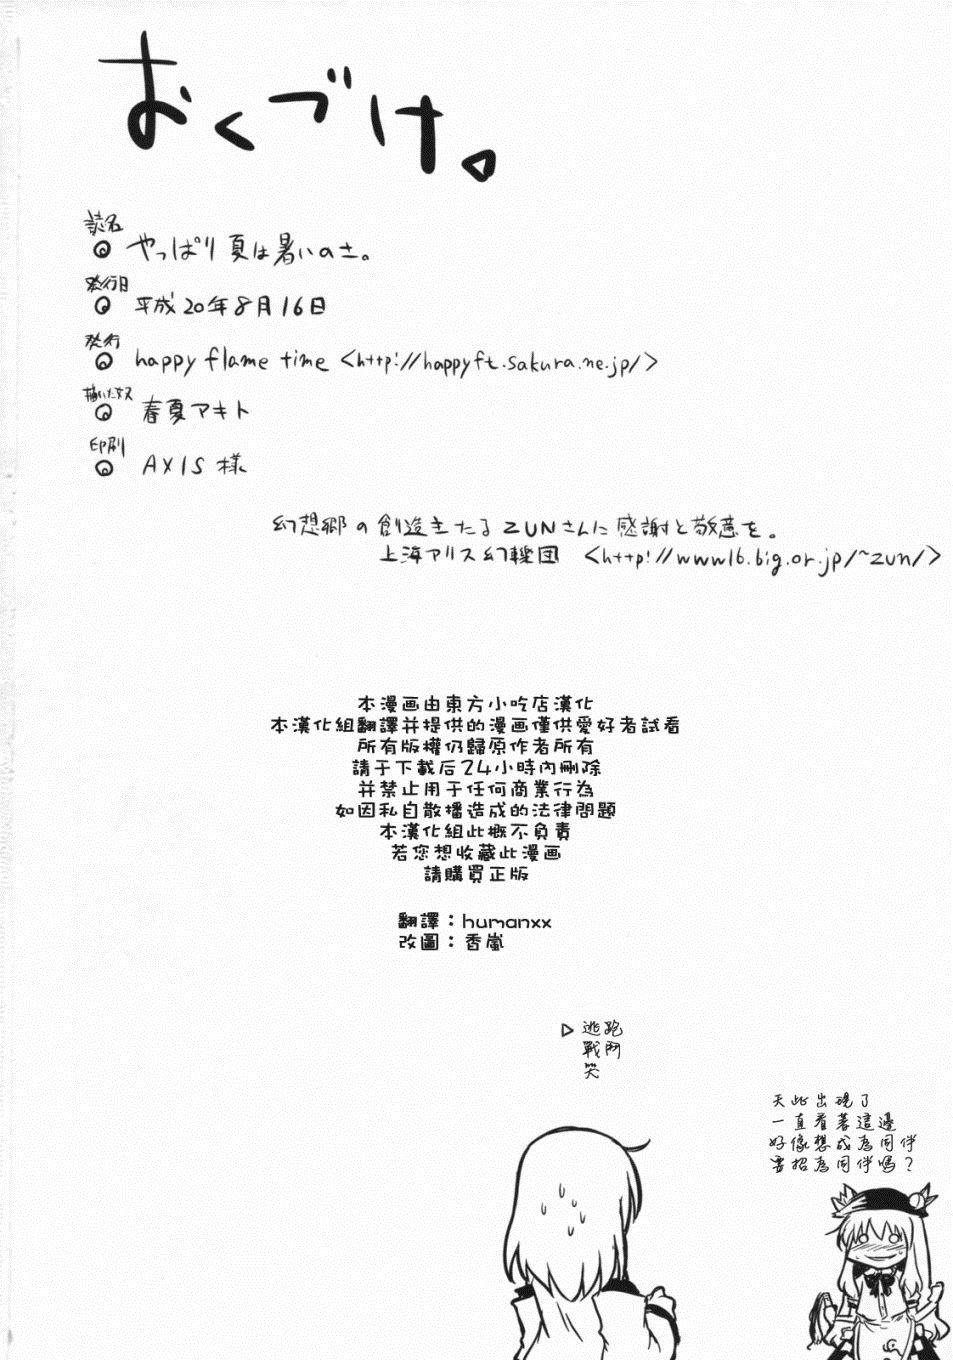 おくづけ。
誌名
やっぱり夏は暑いのさ。
発行日
平成20年8月16日
発行
happy flame time <http://happyft.sakura.ne.jp/>
描いた奴
春夏アキト
印刷
AXIS 様
幻想郷の創造主たるZUNさんに感謝と敬意を。
上海アリス幻樂団 <http://www16.big.or.jp/~zun/>
本漫画由東方小吃店漢化
本漢化組翻譯并提供的漫画僅供愛好者試看
所有版權仍歸原作者所有
請于下載后24小時內刪除
并禁止用于任何商業行為
如因私自散播造成的法律問題
本漢化組此概不負責
若您想收藏此漫画
請購買正版
翻譯：humanxx
改圖：香嵐
▷ 逃跑
戰鬥
笑
天此出現了
一直看著這邊
好像想成為同伴
要招為同伴嗎？